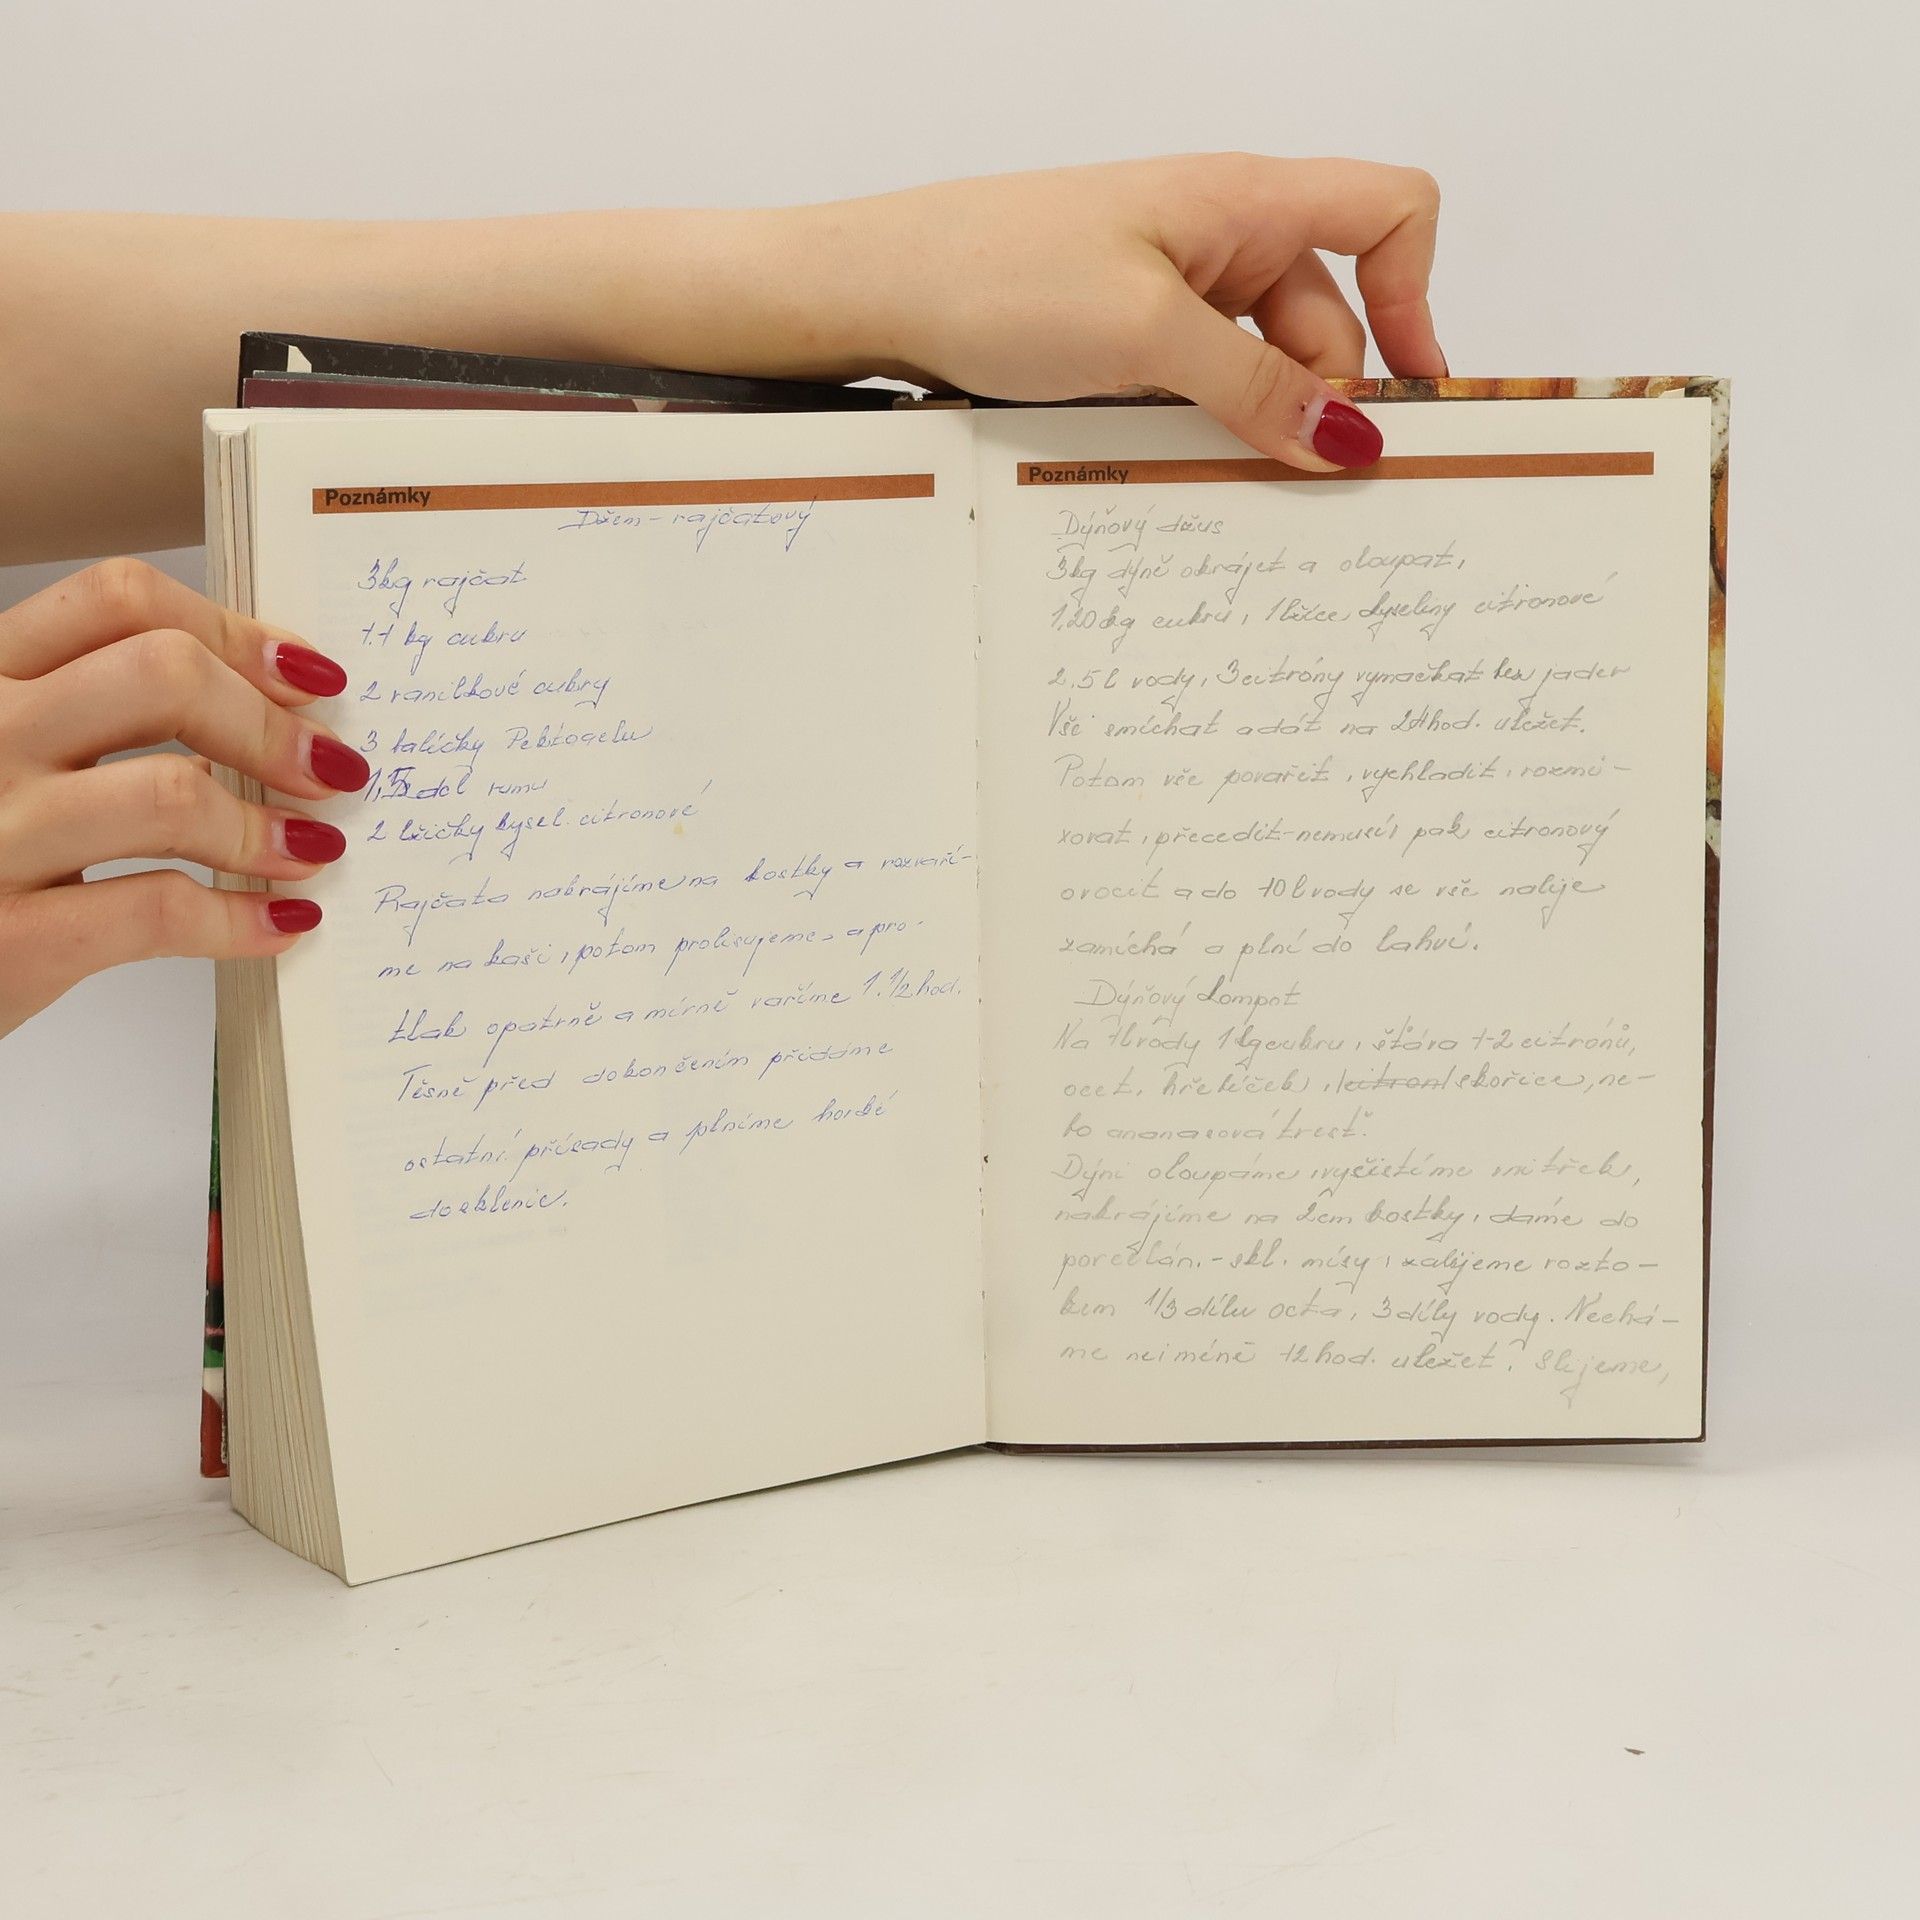 Poznámky
Džem - rajčatový
3kg rajčat
1.1 kg cukru
2 vanilkové cukry
3 balíčky Pektogelu
1,5 dcl rumu
2 lžičky kysel. citronové
Rajčata nakrájíme na kostky a rozvaří-
me na kaši, potom prolisujeme, a pro-
tlak opatrně a mírně vaříme 1.1/2 hod.
Těsně před dokončením přidáme
ostatní přísady a plníme horké
do sklenic.
Poznámky
Dýňový džus
3kg dýně okrájet a oloupat,
1.20 kg cukru, 1 lžíce kyseliny citronové
2.5 l vody, 3 citróny vymačkat bez jader
Vše smíchat a dát na 24 hod. uležet.
Potom vše povařit, vychladit, rozmi-
xovat, přecedit-nemusí, pak citronový
ovocit a do 10 l vody se vše nalije
zamíchá a plní do lahví.
Dýňový kompot
Na 1l vody 1 kg cukru, šťáva 1-2 citrónů,
ocet, hřebíček, citron skořice, ne-
bo ananasová tresť.
Dýni oloupáme, vyčistíme vnitřek,
nakrájíme na 2cm kostky, dáme do
porcelán. - skl. mísy, zalijeme rozto-
kem 1/3 dílu octa, 3 díly vody. Nechá-
me nejméně 12 hod. uležet. Slijeme,